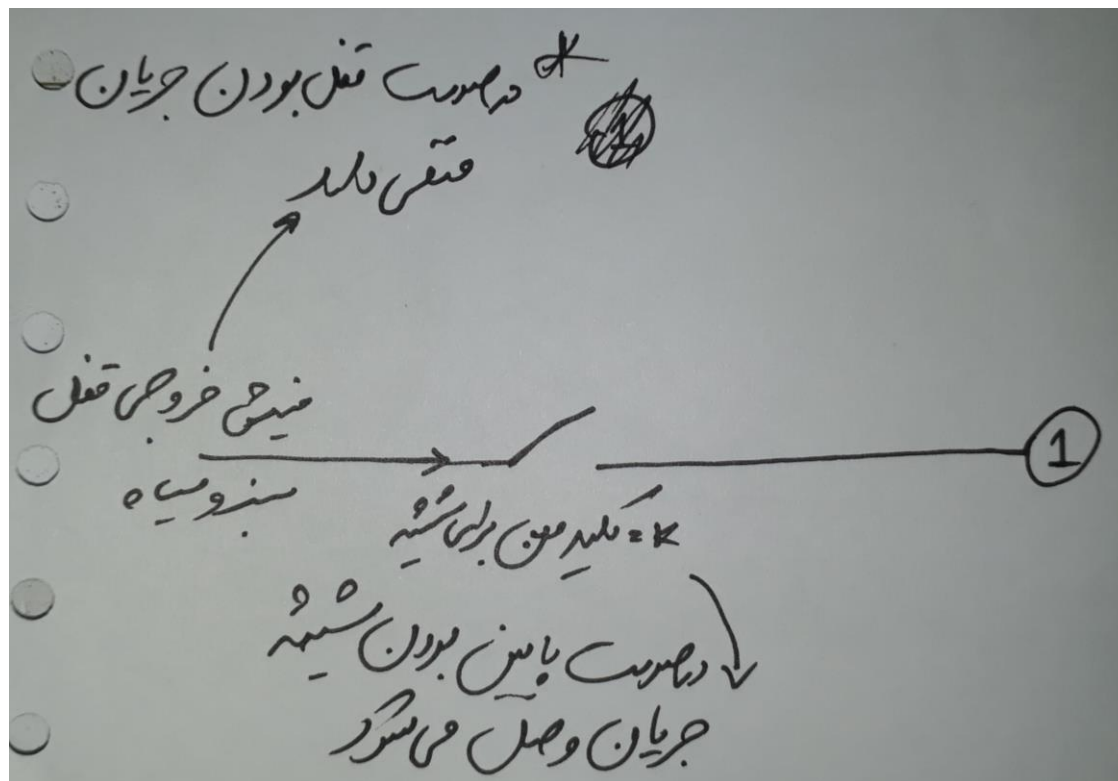 * در صورت قفل بودن جریان
منفی دارد
فیش خروجی قفل
سبز و سیاه
1
K = کلید من برای شیشه
در صورت پایین بودن شیشه
جریان وصل می شود